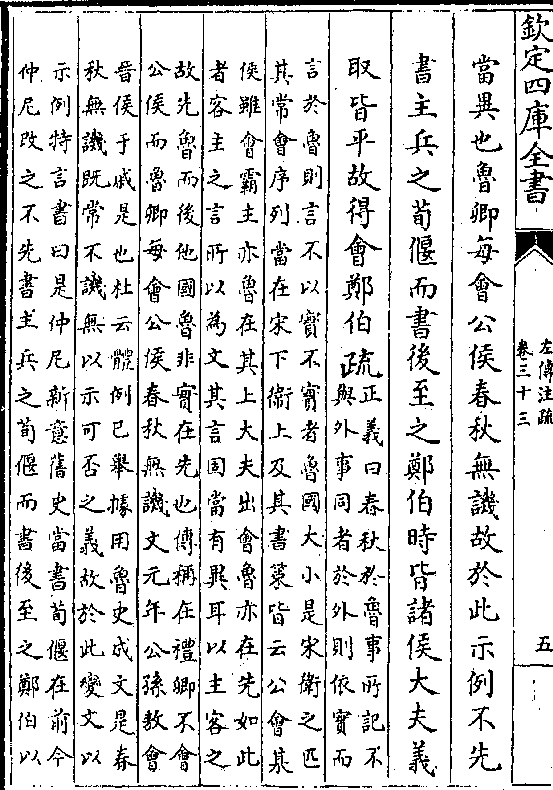 欽定四庫全書
左傳注疏
卷三十三
五
當異也魯卿每會公侯春秋無譏故於此示例不先
書主兵之荀偃而書後至之鄭伯時皆諸侯大夫義
取皆平故得會鄭伯疏
正義曰春秋於魯事所記不
與外事同者於外則依實而
言於魯則言不以實不實者魯國大小是宋衛之匹
其常會序列當在宋下衞上及其書策皆云公會某
侯雖會霸主亦魯在其上大夫出會魯亦在先如此
者客主之言所以為文其言固當有異耳以主客之
故先魯而後他國魯非實在先也傳稱在禮卿不會
公侯而魯卿每會公侯春秋無譏文元年公孫敖會
晉侯于戚是也杜云體例已舉據用魯史成文是春
秋無譏既常不譏無以示可否之義故於此變文以
示例特言書曰是仲尼新意舊史當書荀偃在前今
仲尼改之不先書主兵之荀偃而書後至之鄭伯以